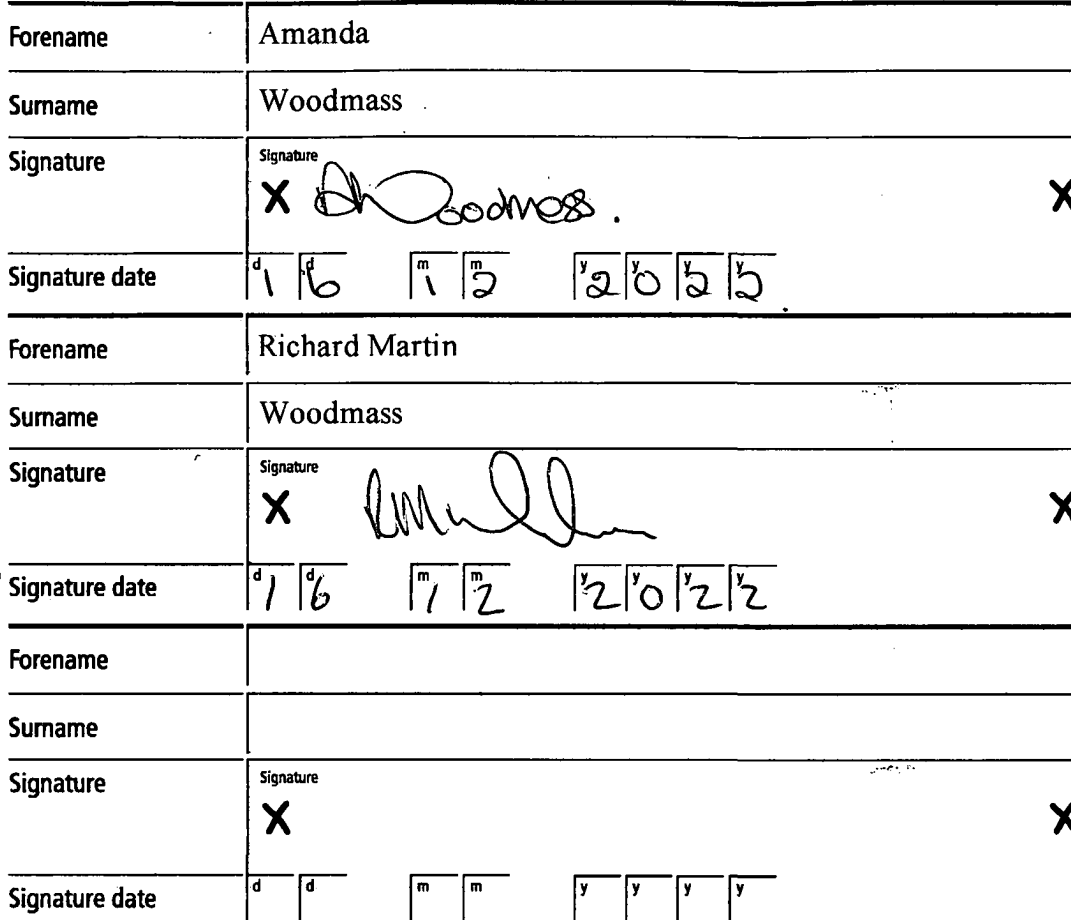 Forename Amanda
Surname Woodmass
Signature Signature
X AWoodmass. X
Signature date d1 d6 m1 m2 y2 y0 y2 y2
Forename Richard Martin
Surname Woodmass
Signature Signature
X X
Signature date d1 d6 m1 m2 y2 y0 y2 y2
Forename
Surname
Signature Signature
X X
Signature date d d m m y y y y